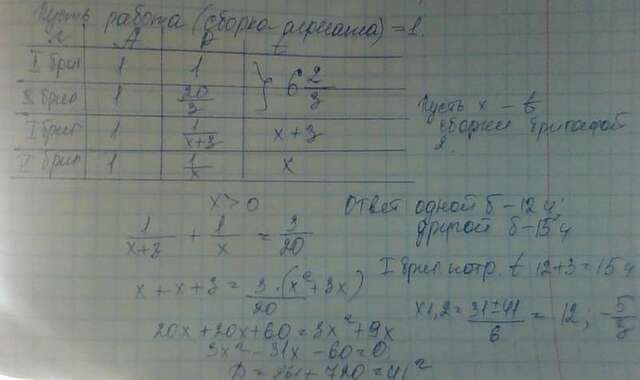 Пусть работа (сборка агрегата) = 1.
A P t
I бриг 1 1 } 6 2/3
II бриг 1 20/3
I бриг 1 1/(x+3) x+3
II бриг 1 1/x x
Пусть x – t
сборки бригадой
x > 0
1/(x+3) + 1/x = 3/20
x + x + 3 = 3/20 · (x² + 3x)
20x + 20x + 60 = 3x² + 9x
3x² – 31x – 60 = 0
D = 961 + 720 = 41²
Ответ одной б – 12 ч;
другой б – 15 ч
I бриг потр. t 12+3 = 15 ч
x1,2 = (31 ± 41)/6 = 12; –5/3